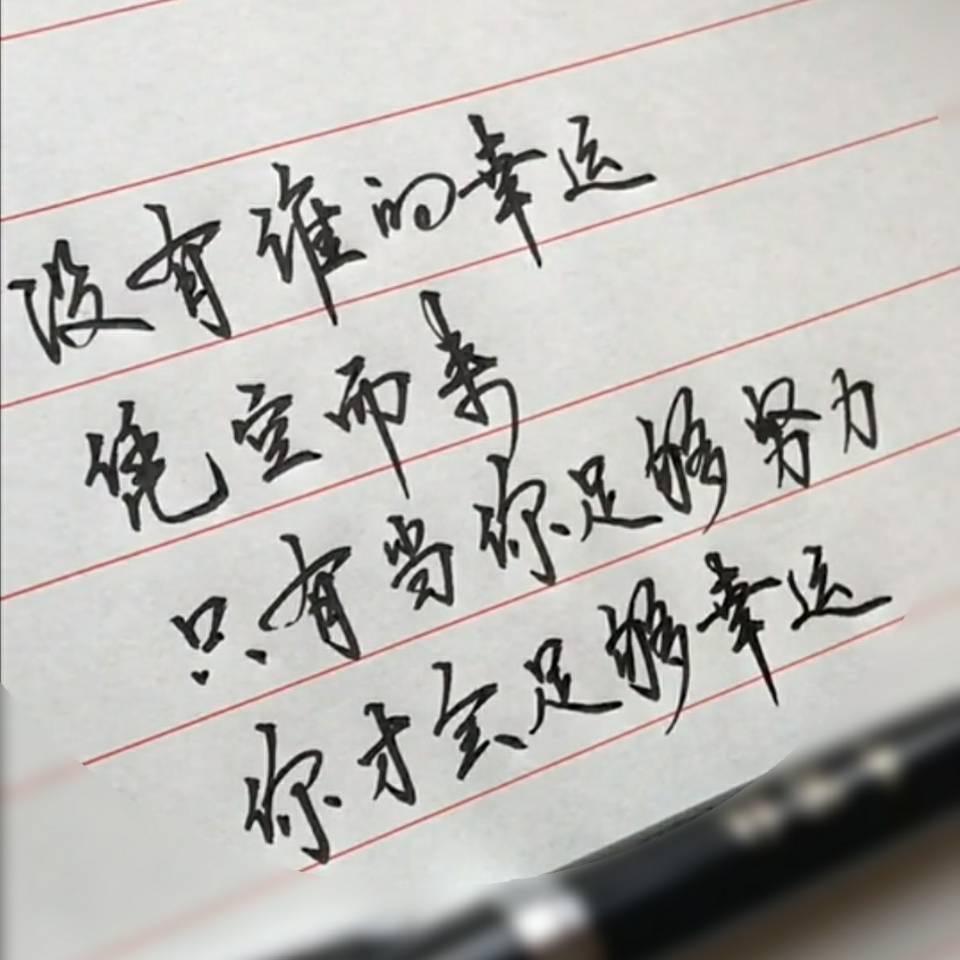 没有谁的幸运
凭空而来
只有当你足够努力
你才会足够幸运